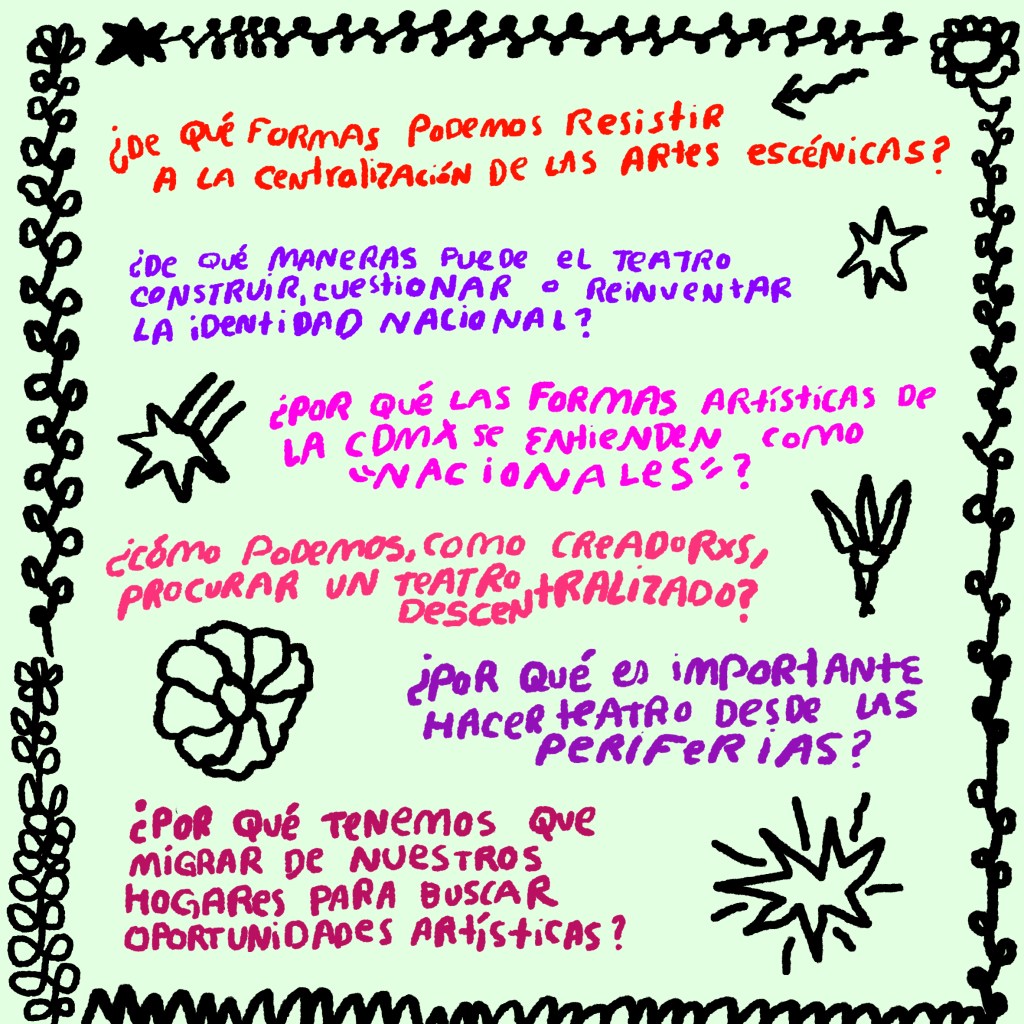 ¿DE QUÉ FORMAS PODEMOS RESISTIR
A LA CENTRALIZACIÓN DE LAS ARTES ESCÉNICAS?
¿DE QUÉ MANERAS PUEDE EL TEATRO
CONSTRUIR, CUESTIONAR O REINVENTAR
LA IDENTIDAD NACIONAL?
¿POR QUÉ LAS FORMAS ARTÍSTICAS DE
LA CDMX SE ENTIENDEN COMO
"NACIONALES"?
¿CÓMO PODEMOS, COMO CREADORXS,
PROCURAR UN TEATRO
DESCENTRALIZADO?
¿POR QUÉ ES IMPORTANTE
HACER TEATRO DESDE LAS
PERIFERIAS?
¿POR QUÉ TENEMOS QUE
MIGRAR DE NUESTROS
HOGARES PARA BUSCAR
OPORTUNIDADES ARTÍSTICAS?